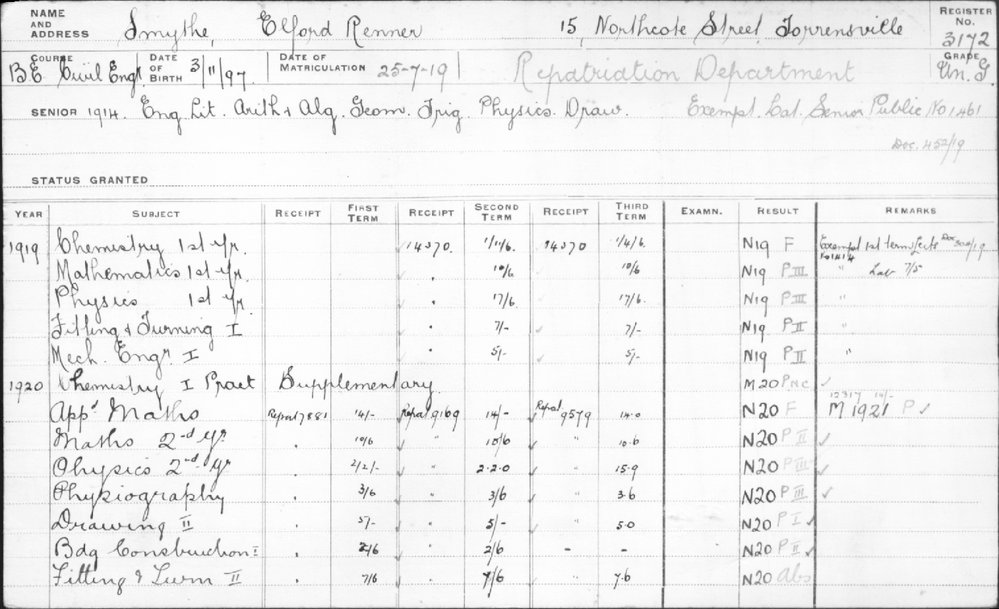 NAME AND ADDRESS Smythe, Elford Renner 15, Northcote Street, Torrensville REGISTER No. 3172
COURSE BE Civil Eng DATE OF BIRTH 3/11/97. DATE OF MATRICULATION 25-7-19 Repatriation Department GRADE Un. G
SENIOR 1914. Eng Lit. Arith & Alg. Geom. Trig. Physics. Draw. Exempt. Lat. Senior Public No 1461
Doc. 452/19
STATUS GRANTED
YEAR SUBJECT RECEIPT FIRST TERM RECEIPT SECOND TERM RECEIPT THIRD TERM EXAMN. RESULT REMARKS
1919 Chemistry 1st yr. 14370. 1/11/6. 14370 1/4/6. N19 F Exempt 1st term fees Doc 300/19
Mathematics 1st yr. 10/6 10/6 N19 P III " Lab 7/5
Physics 1st yr. 17/6 17/6. N19 P III "
Fitting & Turning I 7/- 7/- N19 P II "
Mech. Engr I 5/- 5/- N19 P II "
1920 Chemistry I Pract Supplementary. M20 PNC ✓
App' Maths Repat 7881 14/- Repat 9169 14/- Repat 9579 14.0 N20 F M 1921 P ✓
Maths 2nd yr 10/6 " 10/6 " 10.6 N20 P II ✓
Physics 2nd yr 2/2/- " 2.2.0 " 15.9 N20 P III ✓
Physiography 3/6 " 3/6 " 3.6 N20 P III ✓
Drawing II 5/- " 5/- " 5.0 N20 P I ✓
Bdg Construction I 2/6 " 2/6 - - N20 P II ✓
Fitting & Turn II 7/6 " 7/6 " 7.6 N20 Abs